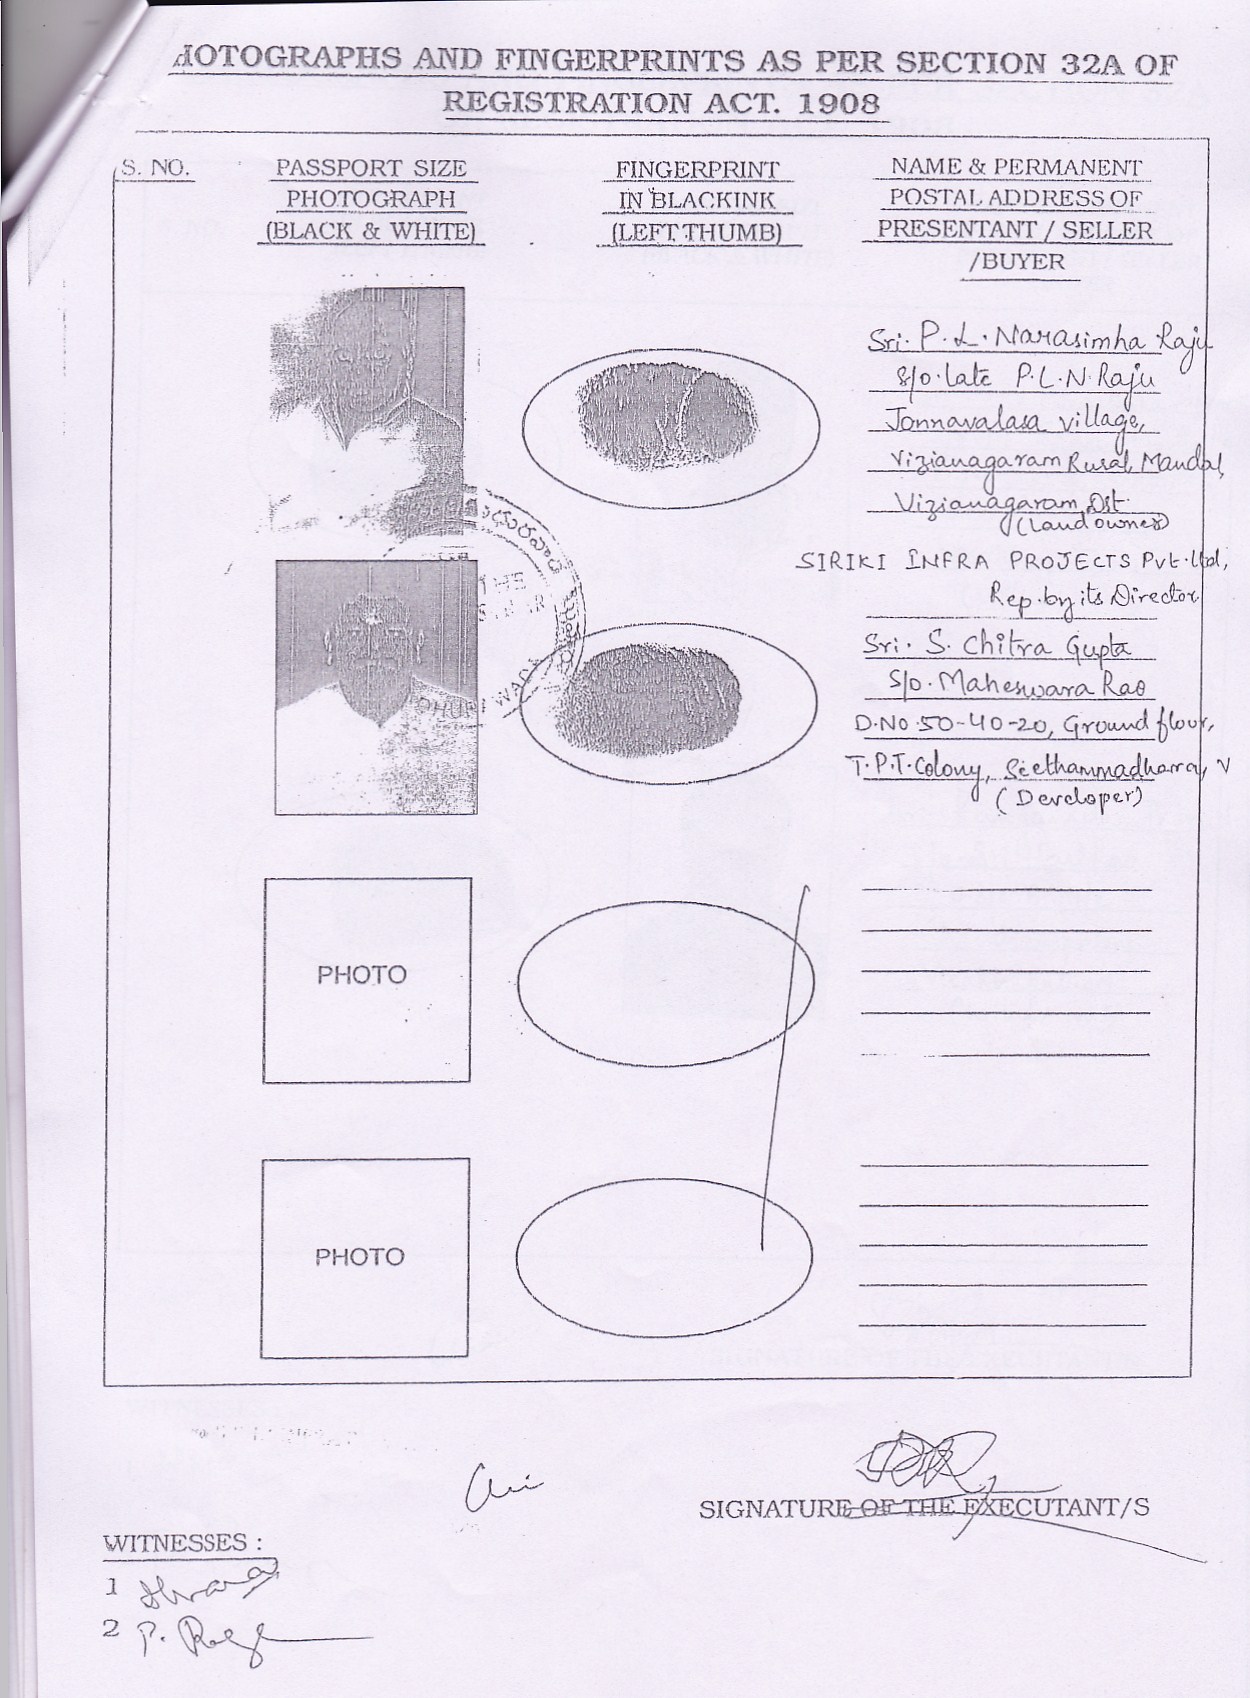 HOTOGRAPHS AND FINGERPRINTS AS PER SECTION 32A OF
REGISTRATION ACT. 1908
S. NO.
PASSPORT SIZE
PHOTOGRAPH
(BLACK & WHITE)
FINGERPRINT
IN BLACKINK
(LEFT THUMB)
NAME & PERMANENT
POSTAL ADDRESS OF
PRESENTANT / SELLER
/BUYER
Sri. P. L. Narasimha Raju
S/o. late P.L.N. Raju
Jonnavalasa village,
Vizianagaram Rural Mandal,
Vizianagaram Dst.
(Land owner)
SIRIKI INFRA PROJECTS Pvt. Ltd,
Rep. by its Director
Sri. S. Chitra Gupta
S/o. Maheswara Rao
D.No. 50-40-20, Ground flour,
T.P.T. Colony, Seethammadhara, V
(Developer)
THE
PHOTO
PHOTO
SIGNATURE OF THE EXECUTANT/S
WITNESSES :
1
2 P.